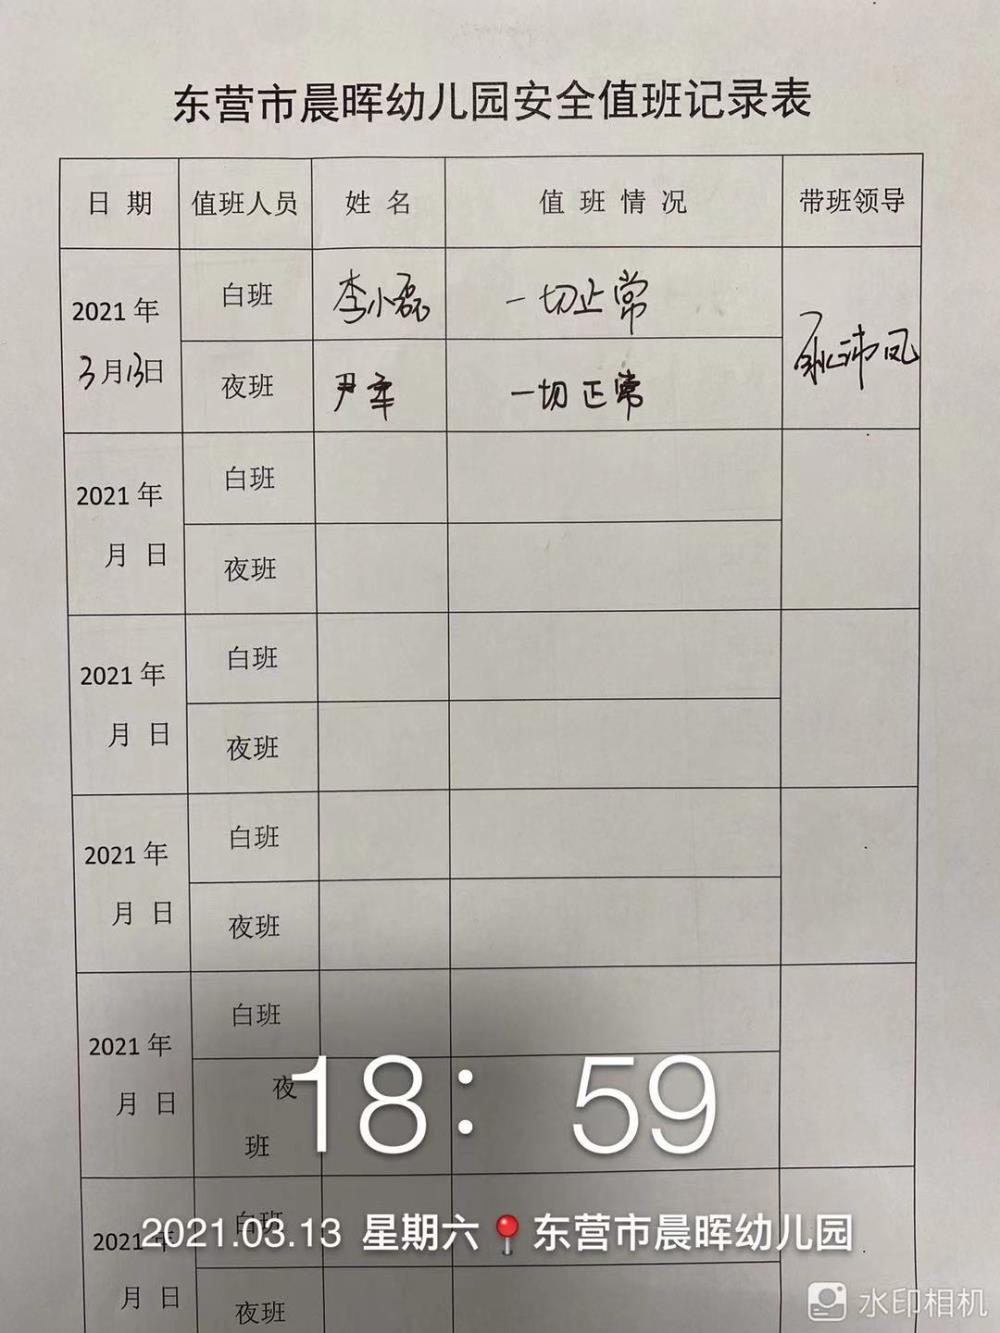 东营市晨晖幼儿园安全值班记录表
日 期 值班人员 姓 名 值 班 情 况 带班领导
2021 年
3 月 13 日
白班 李小磊 一切正常
夜班 尹 一切正常
沛凤
2021 年
月 日
白班
夜班
2021 年
月 日
白班
夜班
2021 年
月 日
白班
夜班
2021 年
月 日
白班
夜
班
18: 59
2021.03.13 星期六 东营市晨晖幼儿园
2021 年
月 日
白班
夜班
水印相机